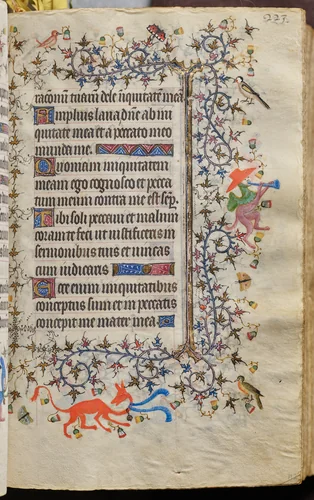 277.
tacionu tuam dele iniquitatē mea
Amplius laua dn̄e ab in
iquitate mea et a peccato meo
munda me.
Quoniam iniquitatem
meam ego cognosco et pecca
tum meum contra me est sēp.
Tibi soli peccaui et malum
coram te feci ut iustificeris in
sermonibus tuis et uincas
cum iudicaris
Ecce enim iniquitatibus
conceptus sum et in peccatis
concepit me mater mea